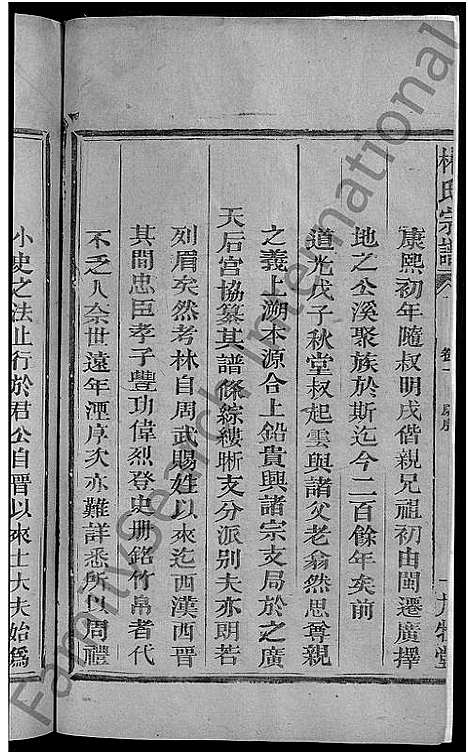 林氏宗譜 卷一
九牧堂
康熙初年隨叔明戌偕親兄祖初由閩遷廣擇
地之公溪聚族於斯迄今二百餘年矣前
道光戊子秋堂叔起雲與諸父老翕然思尊親
之義上溯木源合上鉛貴興諸宗支局於之廣
天后宮協纂其譜條綜縷晰支分派別夫亦朗若
列眉矣然考林自周武賜姓以來迄西漢西晉
其間忠臣孝子豐功偉烈登史册銘竹帛者代
不乏人奈世遠年湮序次亦難詳悉所以周禮
小史之法止行於君公自晉以來士大夫始為
FamilySearch International